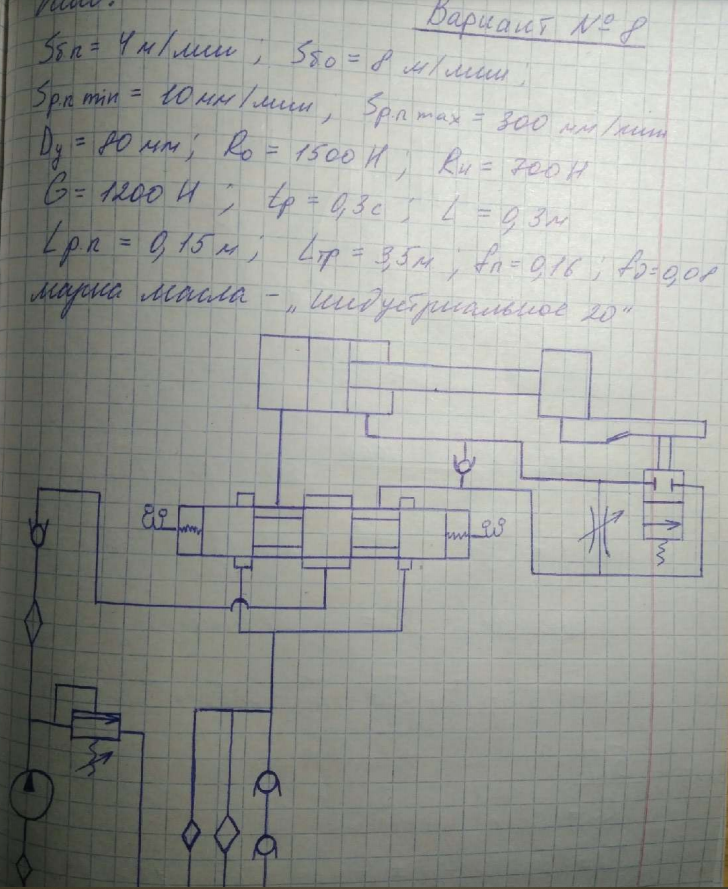 Вариант № 8
Sбп = 4 м/мин ; Sбо = 8 м/мин ;
Sр.п min = 10 мм/мин ; Sр.п max = 300 мм/мин
Dц = 80 мм ; Ro = 1500 Н ; Rн = 700 Н
G = 1200 Н ; tр = 0,3 с ; L = 0,3 м
Lр.п = 0,15 м ; Lтр = 3,5 м ; fп = 0,16 ; fд = 0,08
марка масла - „индустриальное 20"